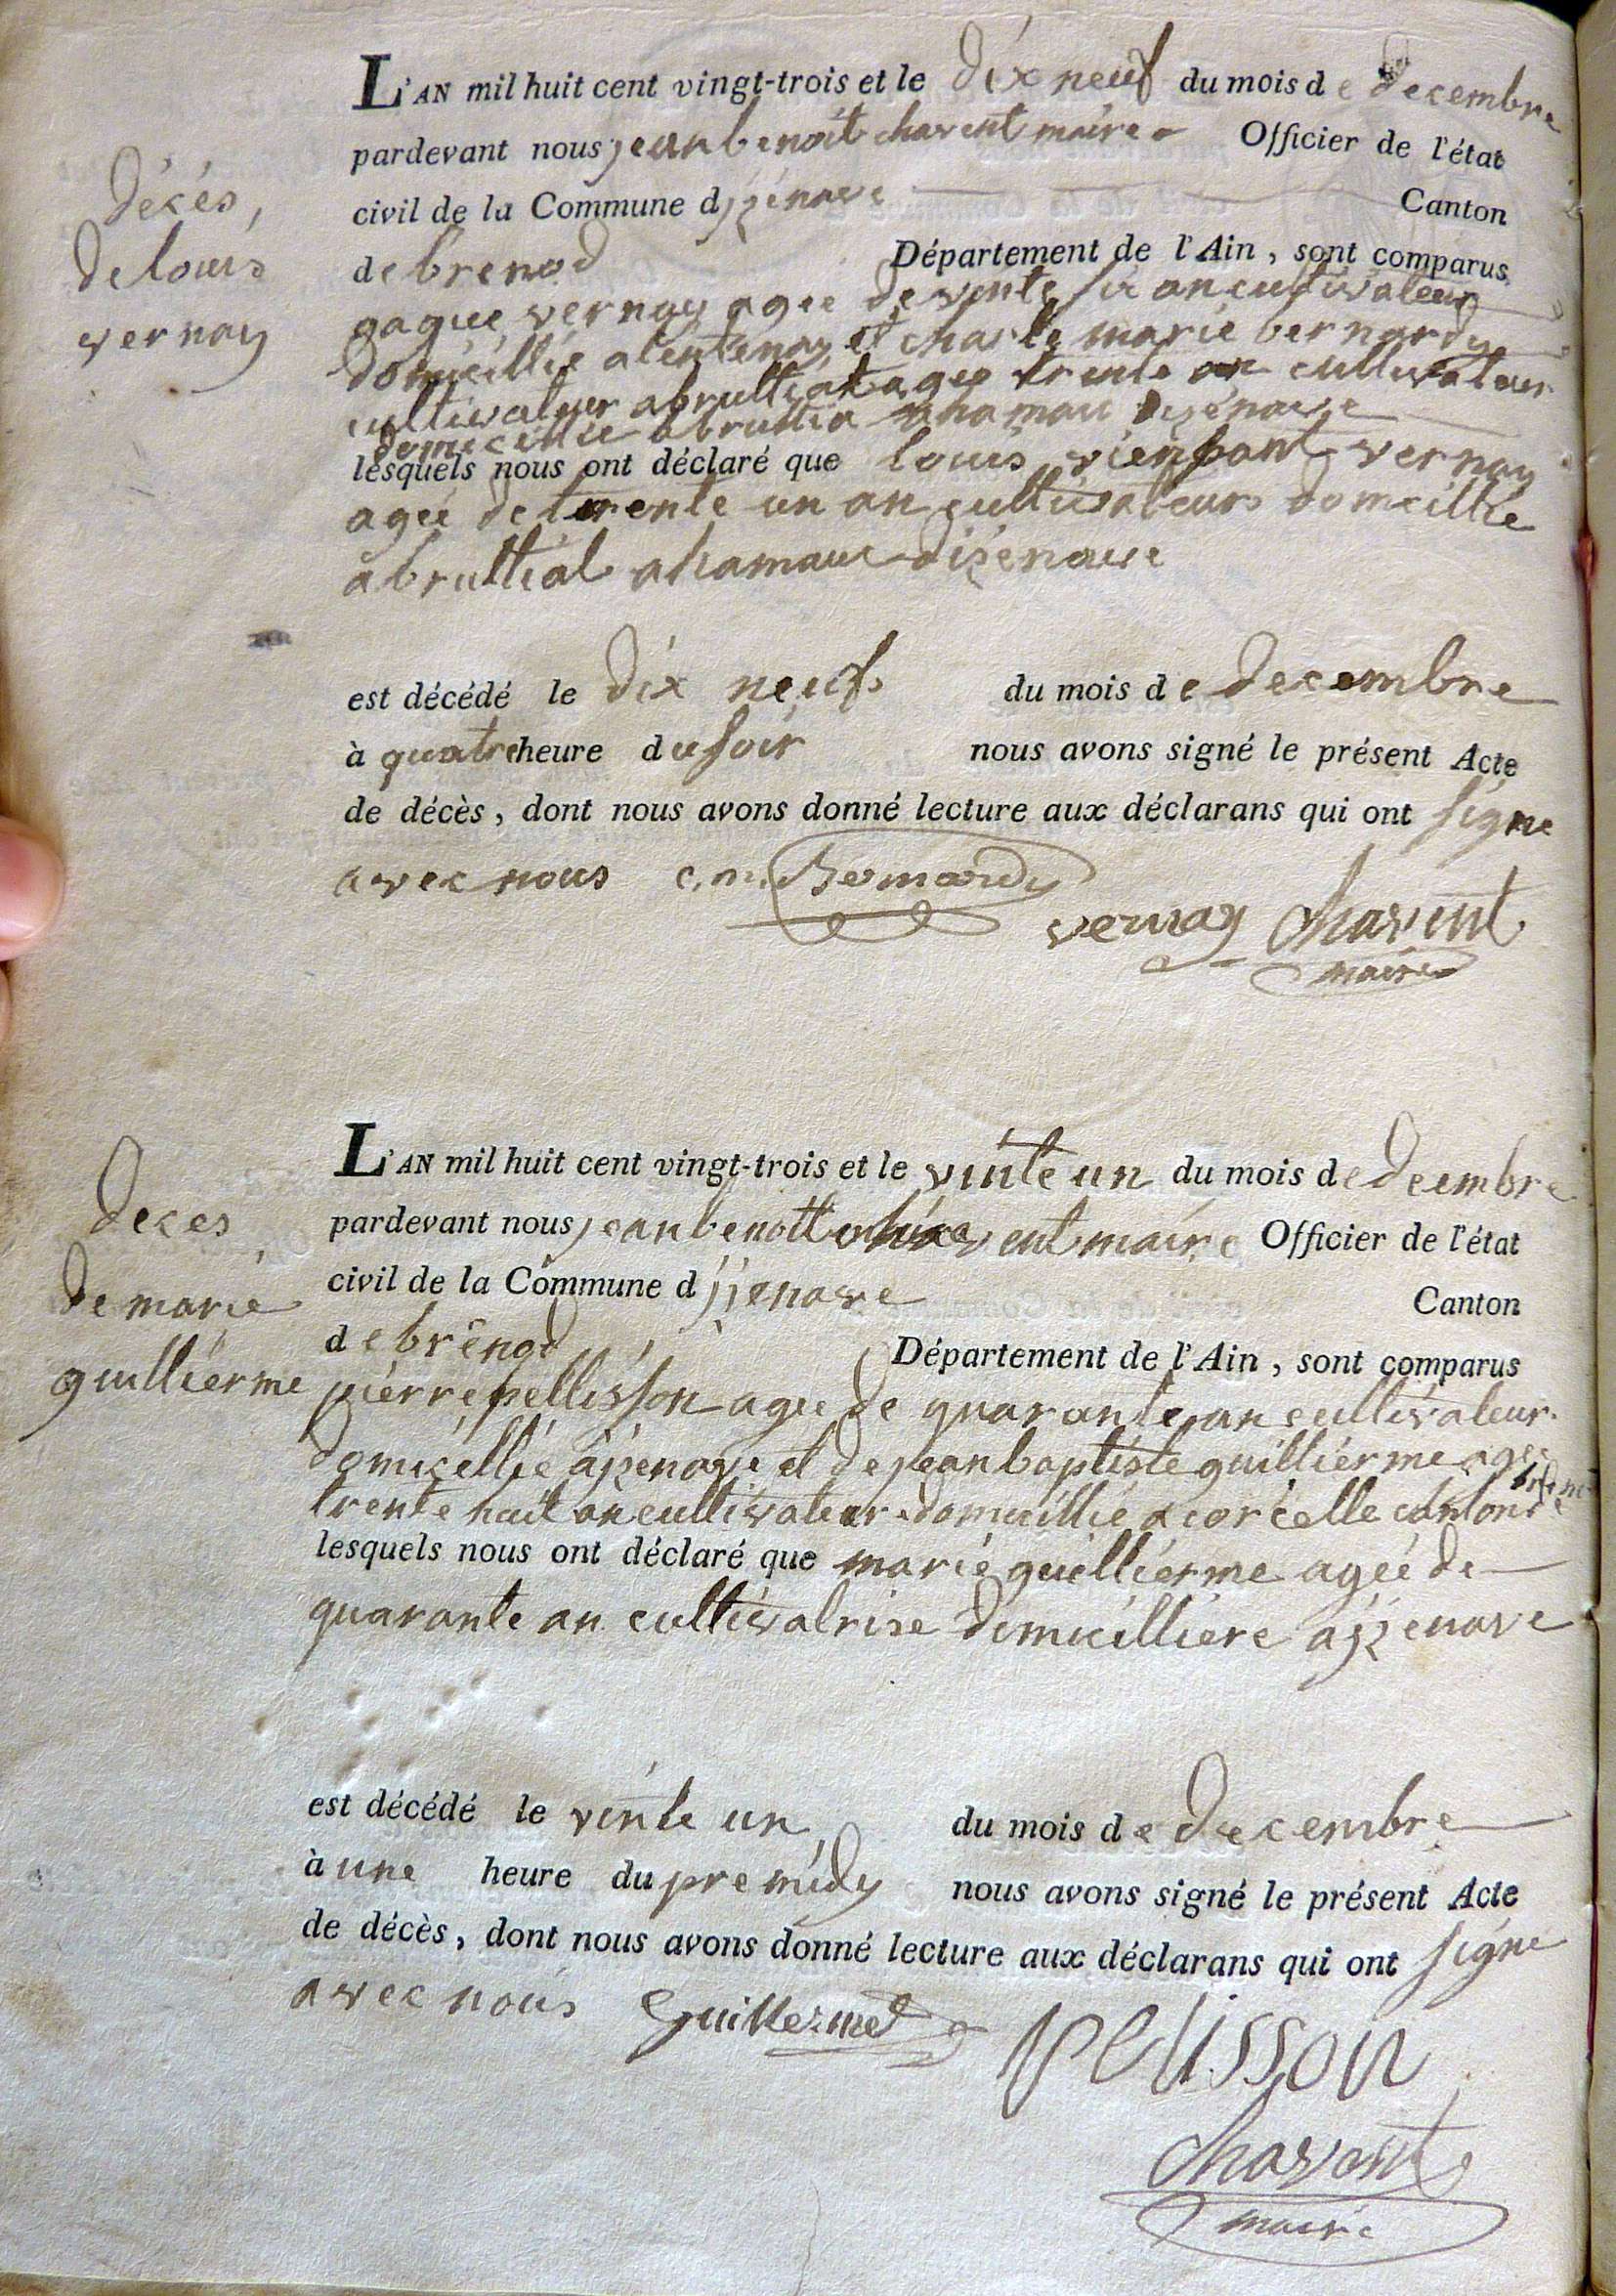 L'AN mil huit cent vingt-trois et le dix neuf du mois de decembre
pardevant nous jean benoit charent maire Officier de l'état
civil de la Commune djzenave Canton
de brenod Département de l'Ain, sont comparus
décés,
de louis
vernay
vernay agee de vente six an cultivateur
domicillie alentenay et charle marie bernardy
cultivateur abruttiat agee trente an cultivateur
domicillie abruttia ahamau dizenave
lesquels nous ont déclaré que louis vernay
agee de trente un an cultivateurs domcillie
abruttial ahamaue dizenave
est décédé le dix neuf du mois de decembre
à quatre heure du soir nous avons signé le présent Acte
de décès, dont nous avons donné lecture aux déclarans qui ont signe
avec nous c. m. Bernardy
vernay charent
maire
L'AN mil huit cent vingt-trois et le vinte un du mois de deembre
pardevant nous jean benoit charent maire Officier de l'état
civil de la Commune djzenave Canton
de brenod Département de l'Ain, sont comparus
deces
de marie
guillierme
pierre pellisson agee de quarante an cultivateur
domicellie ajzenave et de jean baptiste guillierme agee
trente huit an cultivateur domicillie a corcelle canton
lesquels nous ont déclaré que marie guellierme agee de
quarante an cultivatrise domicilliere ajzenave
est décédé le vinte un du mois de decembre
à une heure du premidy nous avons signé le présent Acte
de décès, dont nous avons donné lecture aux déclarans qui ont signe
avec nous Guillermet pelisson
charent
maire